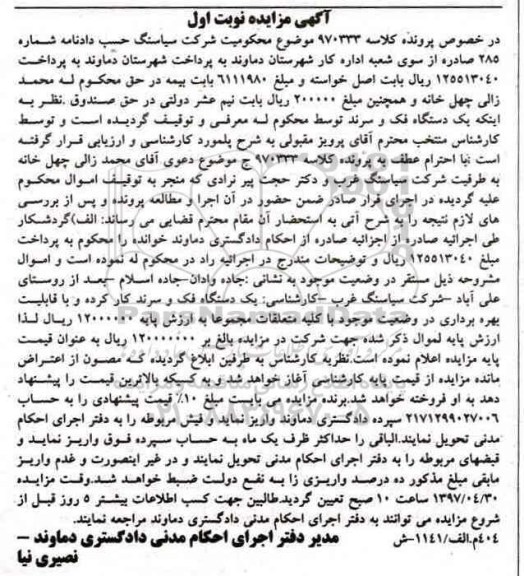 آگهی مزایده نوبت اول
در خصوص پرونده کلاسه ۹۷۰۳۳۳ موضوع محکومیت شرکت سیاسنگ حسب دادنامه شماره
۲۸۵ صادره از سوی شعبه اداره کار شهرستان دماوند به پرداخت شهرستان دماوند به پرداخت
۱۲۵۵۱۳۰۴۰ ریال بابت اصل خواسته و مبلغ ۶۱۱۱۹۸۰ بابت بیمه در حق محکوم له محمد
زالی چهل خانه و همچنین مبلغ ۲۰۰۰۰۰ ریال بابت نیم عشر دولتی در حق صندوق .نظر به
اینکه یک دستگاه فک و سرند توسط محکوم له معرفی و توقیف گردیده است و توسط
کارشناس منتخب محترم آقای پرویز مقبولی به شرح پلمورد کارشناسی و ارزیابی قرار گرفته
است :با احترام عطف به پرونده کلاسه ۹۷۰۳۳۳ ج موضوع دعوی آقای محمد زالی چهل خانه
به طرفیت شرکت سیاسنگ غرب و دکتر حجت پیر نرادی که منجر به توقیف اموال محکوم
علیه گردیده در اجرای قرار صادر ضمن حضور در آن اجرا و مطالعه پرونده و پس از بررسی
های لازم نتیجه را به شرح آتی به استحضار آن مقام محترم قضایی می رساند: الف)گردشکار
طی اجرائیه صادره از اجزائیه صادره از احکام دادگستری دماوند خوانده را محکوم به پرداخت
مبلغ ۱۲۵۵۱۳۰۴۰ ریال و توضیحات مندرج در اجرائیه راد در محکوم له نموده است و اموال
مشروحه ذیل مستقر در وضعیت موجود به نشانی :جاده وادان-جاده اسلام –بعد از روستای
علی آباد –شرکت سیاسنگ غرب –کارشناسی: یک دستگاه فک و سرند کار کرده و با قابلیت
بهره برداری در وضعیت موجود با کلیه متعلقات مجموعا به ارزش پایه ۱۲۰۰۰۰۰۰ ریال لذا
ارزش پایه لموال ذکر شده جهت شرکت در مزایده بالغ بر ۱۲۰۰۰۰۰۰۰ ریال به عنوان قیمت
پایه مزایده اعلام نموده است.نظریه کارشناس به طرفین ابلاغ گردیده که مصون از اعتراض
مانده مزایده از قیمت پایه کارشناسی آغاز خواهد شد و به کسیکه بالاترین قیمت را پیشنهاد
دهد به او فروخته خواهد شد.برنده مزایده می بایست مبلغ ۱۰٪ قیمت پیشنهادی را به حساب
۲۱۷۱۲۹۹۰۲۷۰۰۶ سپرده دادگستری دماوند واریز نماید و فیش مربوطه را به دفتر اجرای احکام
مدنی تحویل نمایند.الباقی را حداکثر ظرف یک ماه به حساب سپرده فوق واریز نماید و
قبضهای مربوطه را به دفتر اجرای احکام مدنی تحویل نمایند و در غیر اینصورت و عدم واریز
مابقی مبلغ مذکور ده درصد واریزی زا به نفع دولت ضبط خواهد شد.وقت مزایده
۱۳۹۷/۰۴/۳۰ ساعت ۱۰ صبح تعیین گردید.طالبین جهت کسب اطلاعات بیشتر ۵ روز قبل از
شروع مزایده می توانند به دفتر اجرای احکام مدنی دادگستری دماوند مراجعه نمایند.
۴۰۴م.الف/۱۱۴۱-ش مدیر دفتر اجرای احکام مدنی دادگستری دماوند –
نصیری نیا